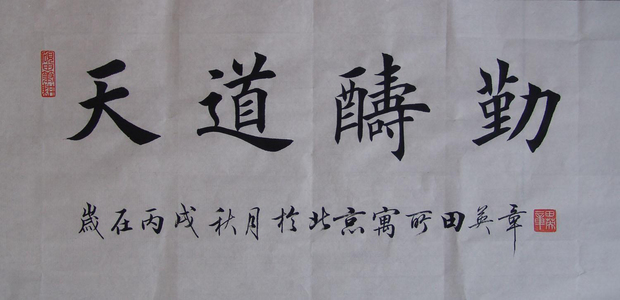 天道醻勤
歲在丙戌秋月於北京寓所田英章